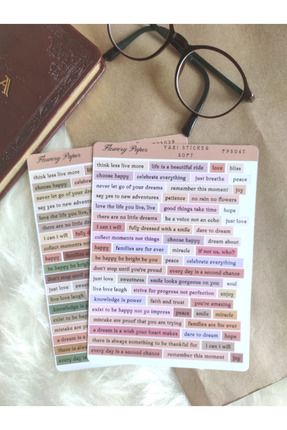 Flowery Paper
YAZI STICKER
SOFT
think less live more life is a beautiful ride love bliss
choose happy celebrate everything just breathe peace
never let go of your dreams remember this moment joy
say yes to new adventures patience no rain no flowers
love the life you live, live good things take time hope
there are no little dreams be a voice not an echo just
I can & will fully dressed with a smile dare to dream
collect moments not things choose happy dream about
happy families are for ever miracle if not us, who?
be happy be bright be you peace celebrate everything
don't stop until you're proud every day is a second chance
just love sweetness smile looks gorgeous on you soul
live love laugh strive for progress not perfection enjoy
knowledge is power faith and trust you're amazing
exist to be happy not go impress peace smile miracle
mistake are proof that you are trying families are for ever
a dream is a wish your heart makes dare to dream hope
there is always something to be thankful for I can & will
every day is a second chance remember this moment joy
Flowery Paper
think less live
choose happy
never let go of
say yes to new
love the life
there are no
I can & will
collect moments
happy
be happy be
don't stop
just love
live love